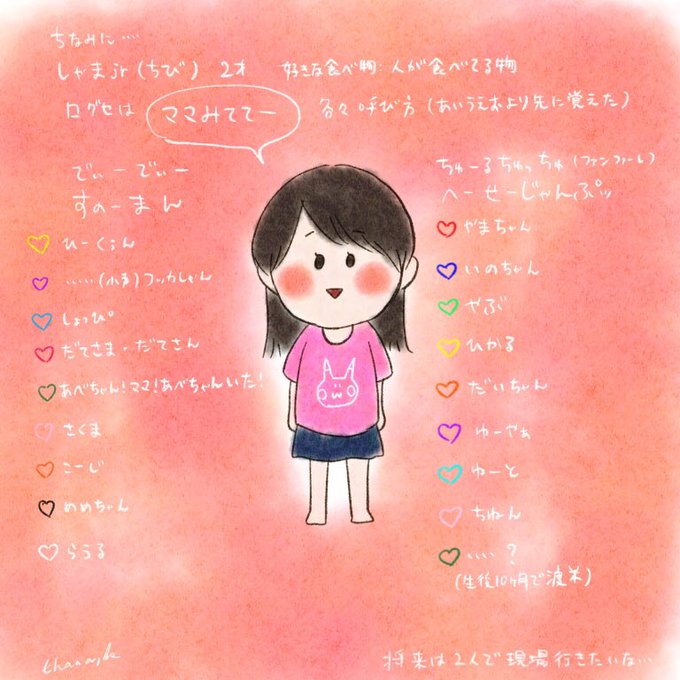 ちなみに…
しゃまjr(ちび) 2才 好きな食べ物:人が食べてる物
口グセは ママみててー 各々呼び方(あいうえおより先に覚えた)
でぃーでぃー
すのーまん
ひーくぅん
……(小声)フッカしゃん
しょっぴ°
だてさま・だてさん
あべちゃん!ママ!あべちゃんいた!
さくま
こーじ
めめちゃん
らうる
ちゅーるちゅっちゅ(ファンファーレ)
へーせーじゃんぷッ
やまちゃん
いのちゃん
やぶ
ひかる
だいちゃん
ゆーやぁ
ゆーと
ちねん
…?
(生後10ヶ月で渡米)
将来は2人で現場行きたいな…